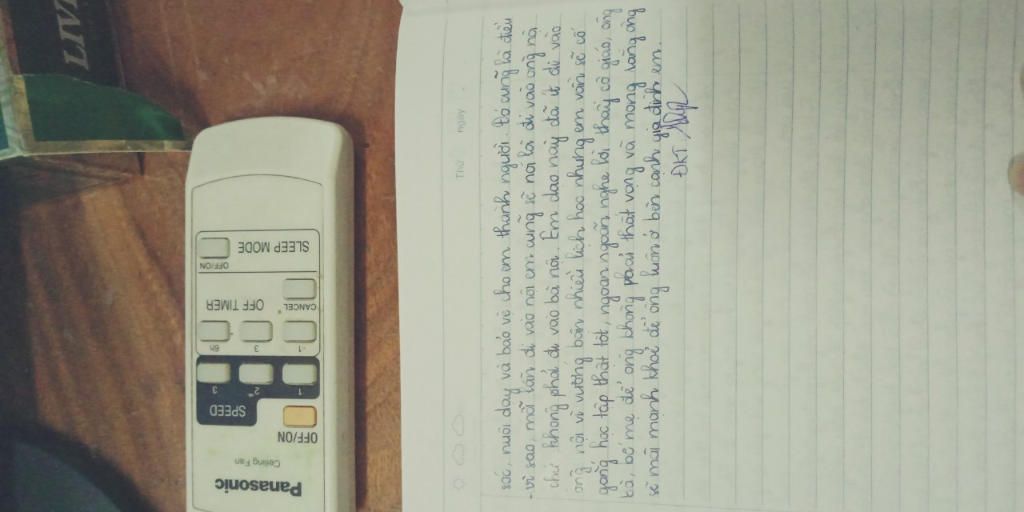 LIV
Panasonic
Ceiling Fan
OFF/ON
SPEED
1 2 3
-1 3 6h
CANCEL OFF TIMER
OFF/ON SLEEP MODE
Thứ ngày
sóc, nuôi dạy và bảo vệ cho em thành người. Đó cũng là điều
vì sao, mỗi lần đi vào nội em cũng sẽ nói là đi vào ông nội
chứ không phải đi vào bà nội. Em dạo này đã ít đi vào
ông nội vì vướng bận nhiều lịch học nhưng em vẫn sẽ cố
gắng học tập thật tốt, ngoan ngoãn nghe lời thầy cô giáo, ông
bà, bố mẹ để ông không phải thất vọng và mong rằng ông
sẽ mãi mạnh khoẻ để ông luôn ở bên cạnh gia đình em.
ĐKT